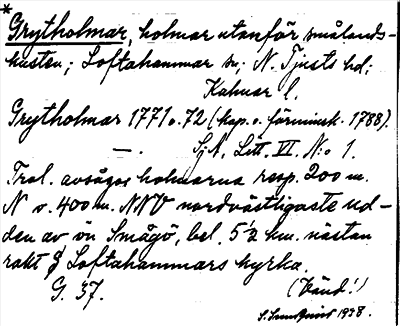 *
Grytholmar, holmar utanför smålands-
kusten; Loftahammar sn; N. Tjusts hd;
Kalmar l.
Grytholmar 1771 o. 72 (kop. o. förminsk. 1788).
—. SjA, Litt. VI, N:o 1.
Trol. avsågos holmarna resp. 200 m.
N o. 400 m. NNV nordvästligaste ud-
den av ön Smågö, bel. 5½ km. nästan
rakt S Loftahammars kyrka.
G. 37. (Vänd!)
S. Sundquist 1938.